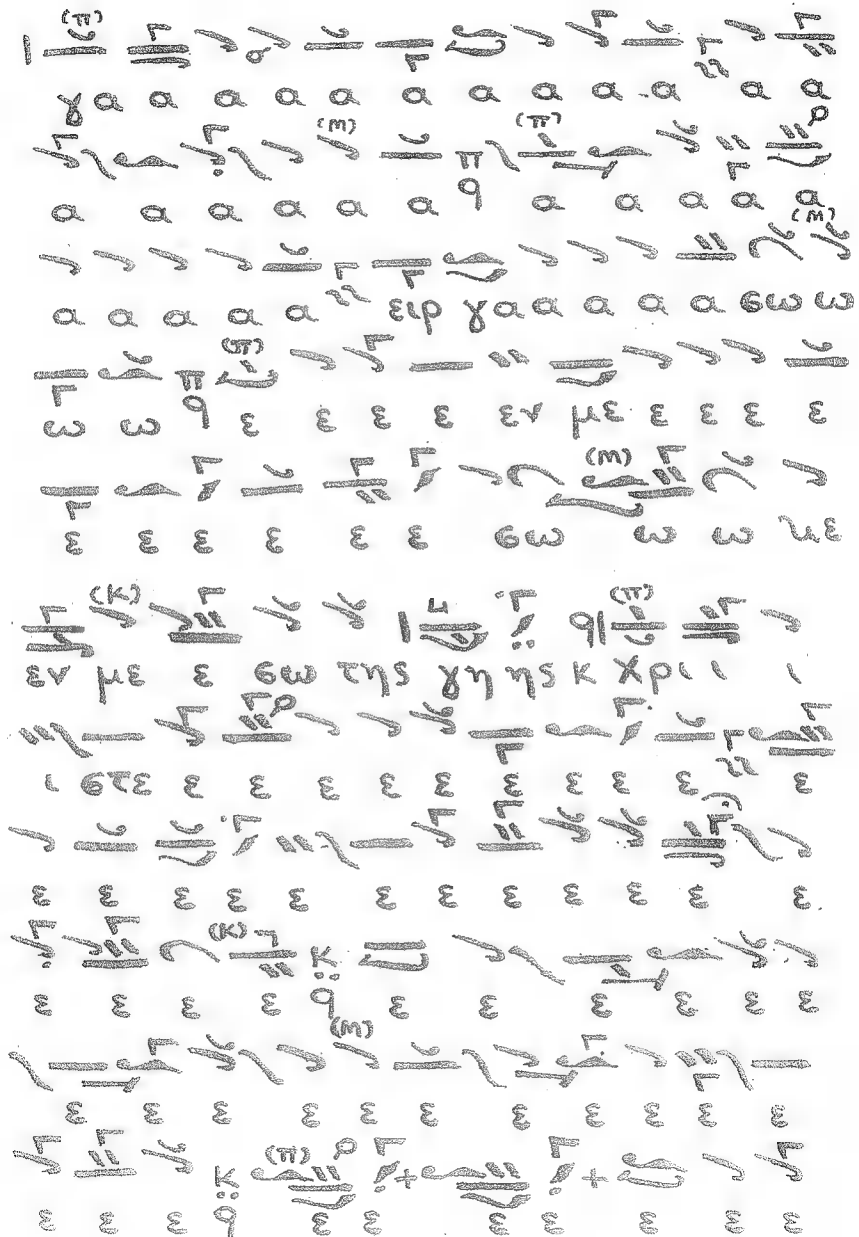 (π)
γα α α α α α α α α α α α
(Μ) (π)
π
α α α α α α q α α α α α
(Μ)
α α α α α ειρ γα α α α α σω ω
(π)
π
ω ω q ε ε ε ε εν με ε ε ε ε
(Μ)
ε ε ε ε ε ε σω ω ω με
(Κ) (π)
εν με ε σω της γη ης κ Χρι ι ι
ι στε ε ε ε ε ε ε ε ε ε
ε ε ε ε ε ε ε ε ε ε ε ε
(Κ) Κ
ε ε ε ε q ε ε ε ε ε ε
(Μ)
ε ε ε ε ε ε ε ε ε ε ε
Κ (π)
ε ε ε q ε ε ε ε ε ε ε